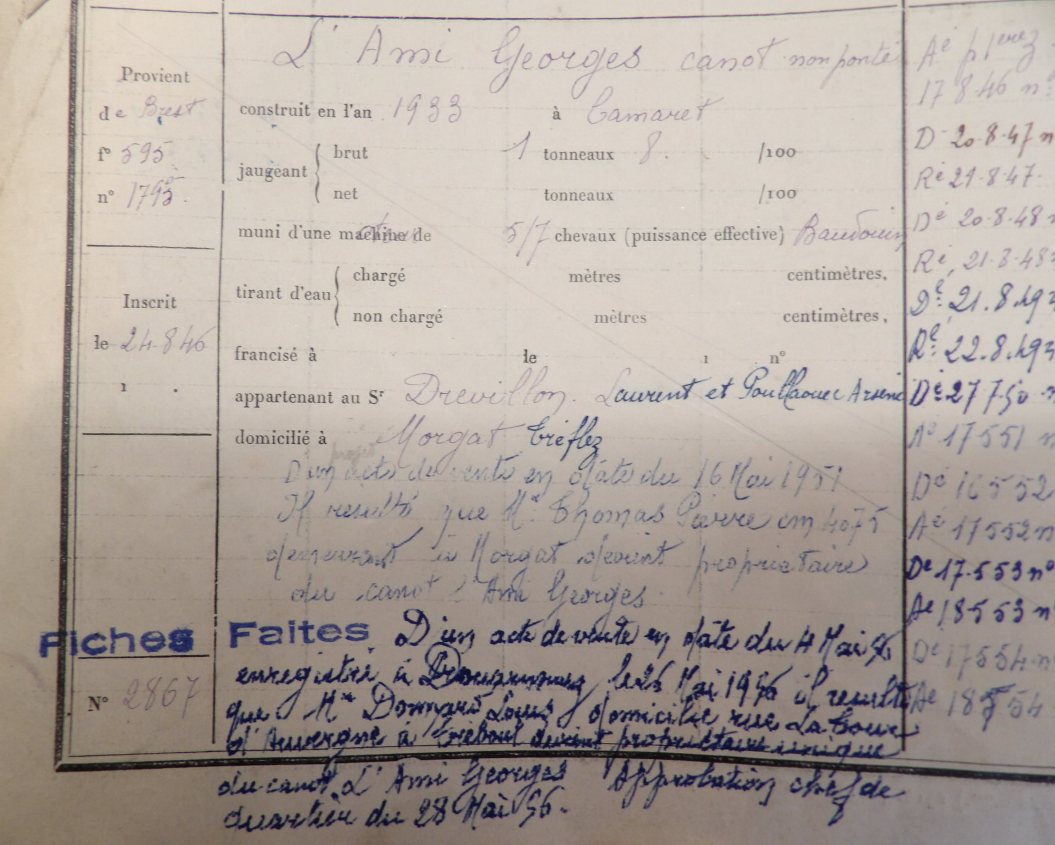 L'Ami Georges canot non ponté
Provient
de Brest
f° 595
n° 1795
construit en l'an 1933 à Camaret
jaugeant
brut 1 tonneaux 8. /100
net tonneaux /100
muni d'une machine de 5/7 chevaux (puissance effective) Baudouin
tirant d'eau
chargé mètres centimètres,
non chargé mètres centimètres,
Inscrit
le 24.8 46
1 .
francisé à le 1 n°
appartenant au Sr Drevillon. Laurent et Poullaouec Arsene
domicilié à Morgat Tréflez
projet
D'un acte de vente en date du 16 Mai 1951
Il resulte que Mr Thomas Pierre cm 4075
demeurant à Morgat devient proprietaire
du canot l'Ami Georges.
Fiches Faites
D'un acte de vente en date du 4 Mai 56
enregistré à Douarnenez le 26 Mai 1956 il resulte
que Mr Donnard Louis domicilié rue La Tour
d'Auvergne à Tréboul devient proprietaire unique
du canot L'Ami Georges Approbation chef de
quartier du 28 Mai 56.
N° 2867
17 8.46 n°
D 20.8.47 n
Ré 21.8.47.
Dé 20.8.48 n
Ré, 21.8.48
Dé. 21.8.49
Ré. 22.8.49
Dé 27 7 50 n
Aé 17 5 51 n
Dé 16 5 52
Aé 17 5 52 n
Dé 17.5 53 n°
Aé 18 5 53 n
Dé 17 5 54 n
Aé 18 5 54